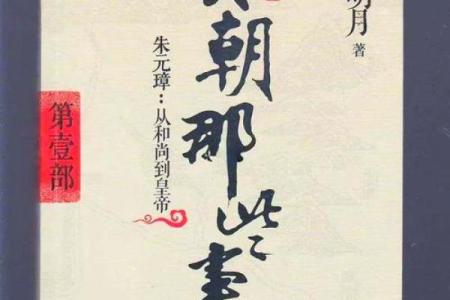 明月 著
朝那些事
朱元璋：从和尚到皇帝
第壹部